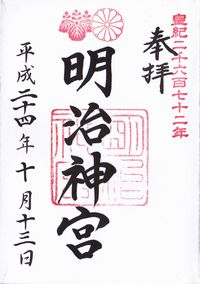 皇紀二千六百七十二年
奉拝
明治神宮
平成二十四年十月十三日